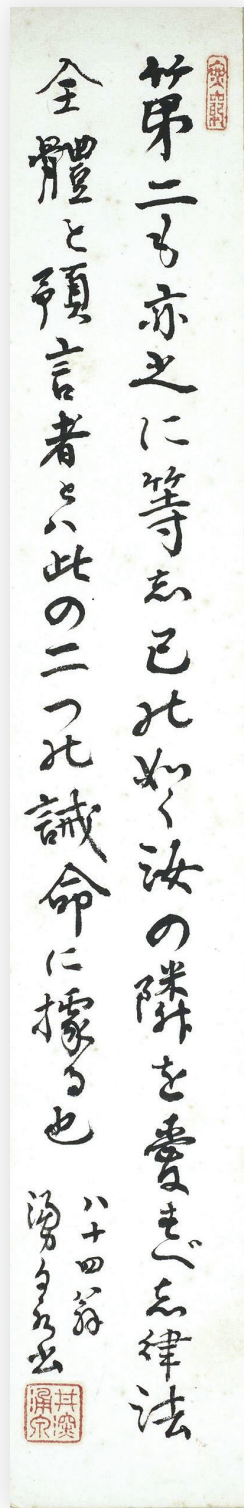 第二も亦之に等志己の如く汝の隣を愛すべ志律法
全體と預言者とハ此の二つの誡命に據る也
八十四翁
湧泉書